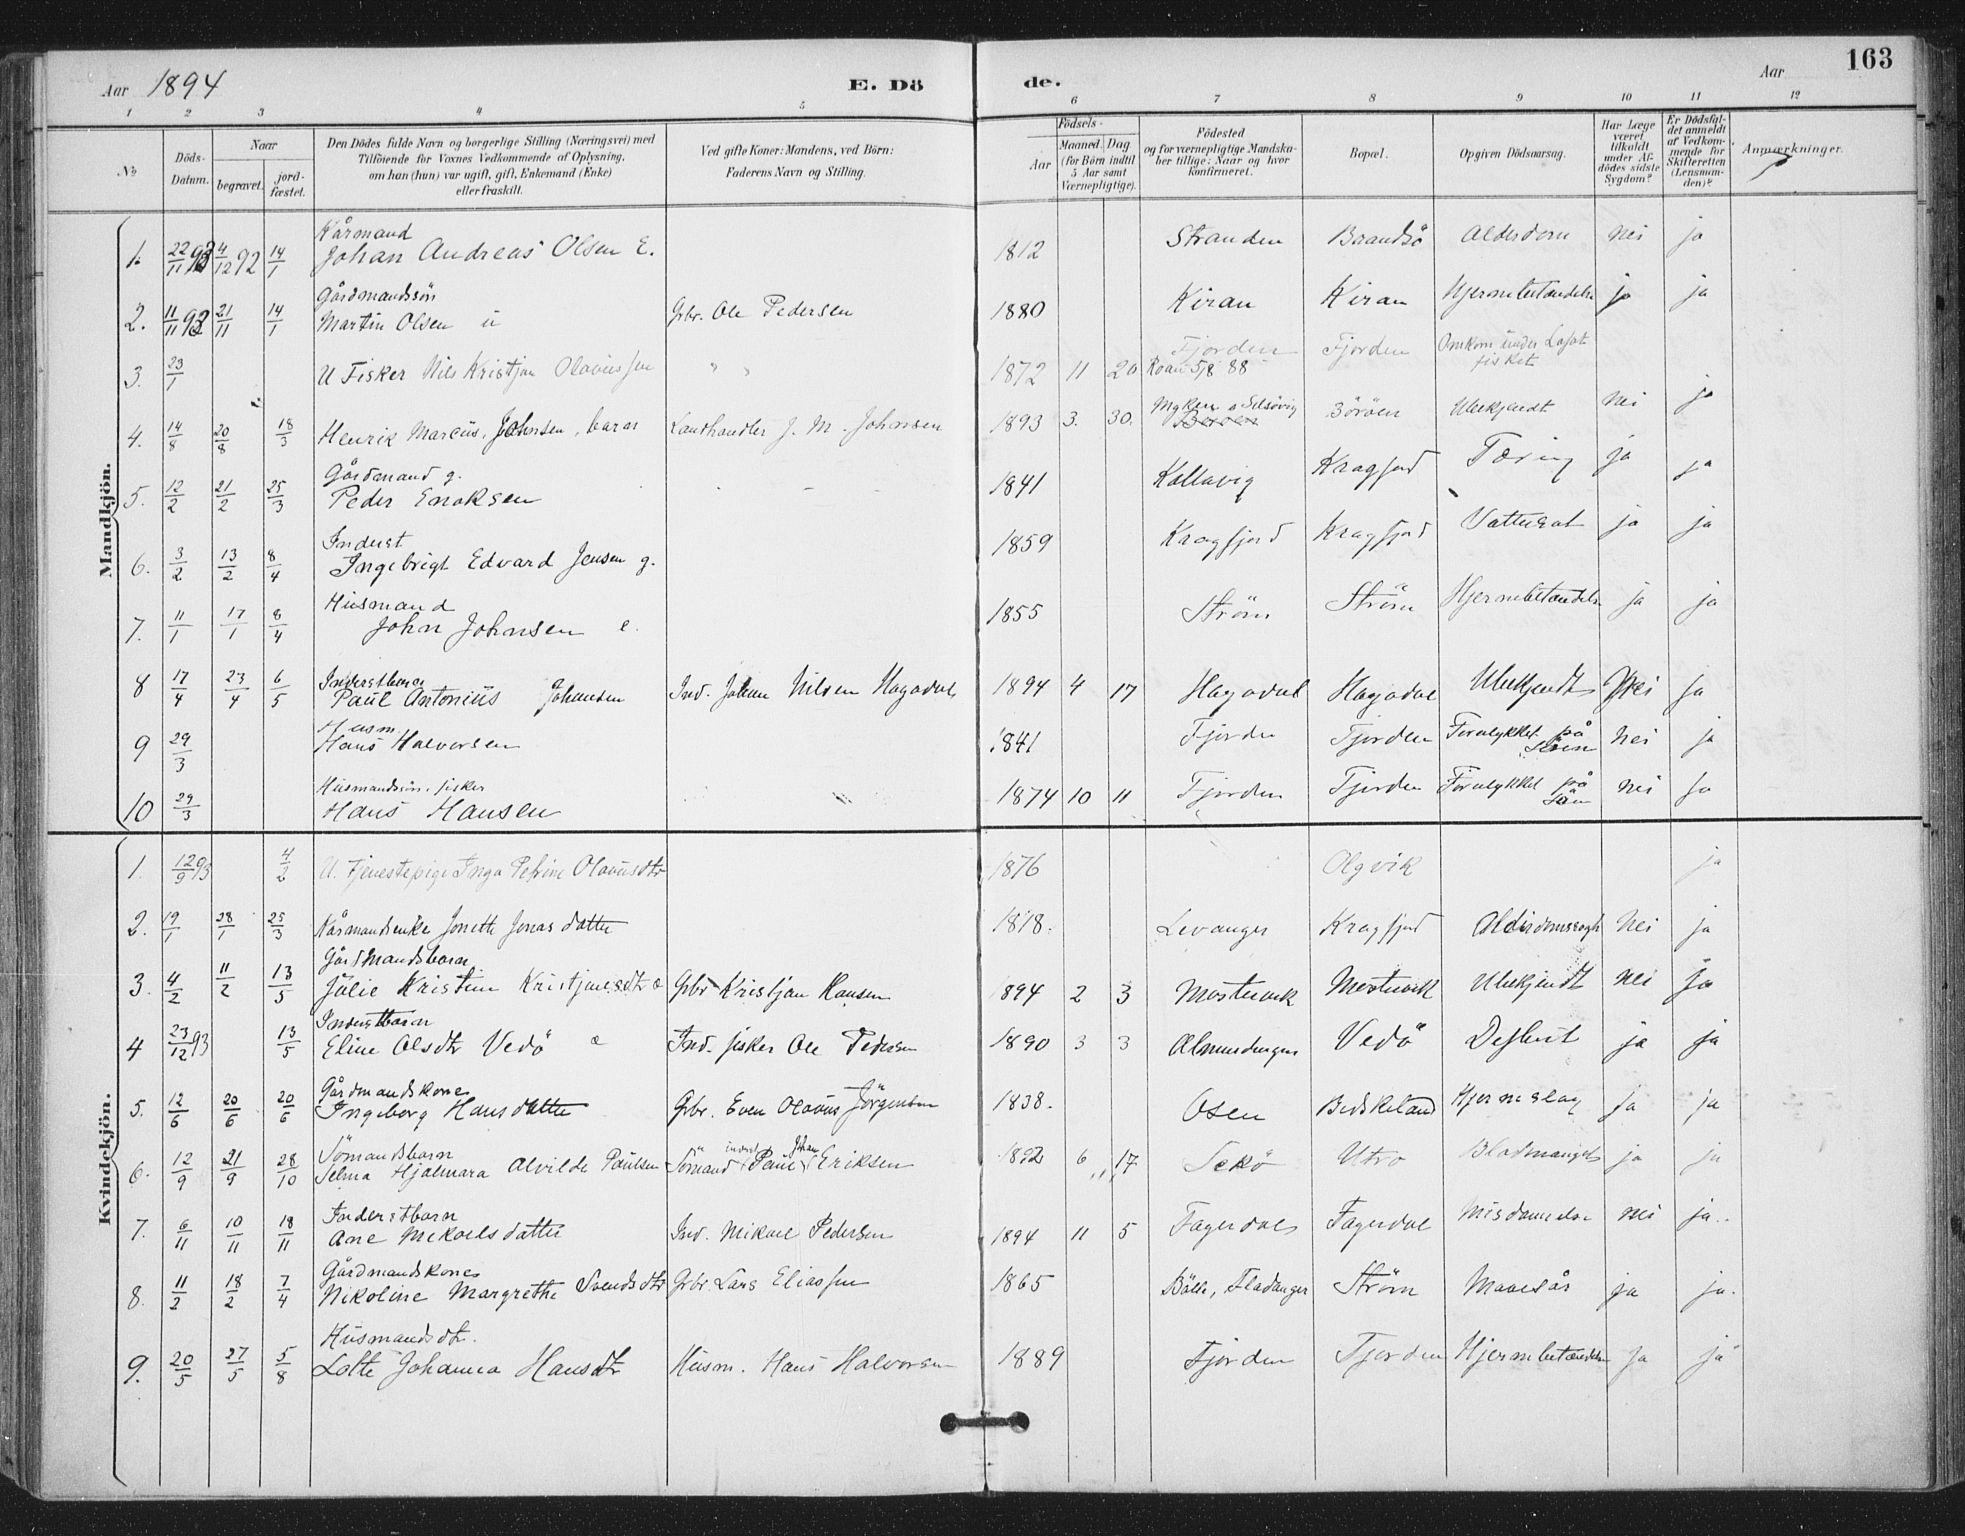 Aar 1894 E. Dö de. Aar 163
1 2 3 4 5 6 7 8 9 10 11 12
No Döds-Datum. Naar begravet. jord-fæstet. Den Dödes fulde Navn og borgerlige Stilling (Næringsvei) med Tilföiende for Voxnes Vedkommende af Oplysning, om han (hun) var ugift, gift, Enkemand (Enke) eller fraskilt. Ved gifte Koner: Mandens, ved Börn: Faderens Navn og Stilling. Födsels- Aar Maaned. Dag (for Börn indtil 5 Aar samt Værnepligtige). Födested og for værnepligtige Mandska-ber tillige: Naar og hvor konfirmeret. Bopæl. Opgiven Dödsaarsag. Har Læge været tilkaldt under Af-dödes sidste Sygdom? Er Dödsfal-det anmeldt af Vedkom-mende for Skifteretten (Lensman-den)? Anmærkninger.
Mandkjön.
Kårmand
1. 22/11 93 4/12 92 14/1 Johan Andreas Olsen E. 1812 Stranden Brandsö Alderdom nei ja
Gårdmandssön
2. 11/11 93 21/11 14/1 Martin Olsen u Gbr. Ole Pedersen 1880 Kiran Kiran Hjernebetændelse ja ja
Fjorden Fjorden Omkom under Lofot
3. 23/1 U Fisker Nils Kristjan Olaviussen " " 1872 11 20 Roan 5/8 88 fisket
4. 14/8 20/8 18/3 Henrik Marcus Johnsen, barn Landhandler J. M. Johnsen 1893 3. 30. Böröen Ubekjendt nei ja
Gårdmand g.
5. 12/2 21/2 25/3 Peder Enoksen 1841 Kallavig Kragfjord Tæring ja ja
Inderst
6. 3/2 13/2 8/4 Ingebrigt Edvard Jensen g. 1859 Kragfjord Kragfjord Vattersot ja ja
Husmand
7. 11/1 17/1 8/4 John Johnsen e. 1855 Ström Ström Hjernebetændelse ja ja
Inderstbarn
8 17/4 23/4 6/5 Paul Antonius Johansen Ind. Johan Nilsen Hagadal 1894 4 17 Hagadal Hagadal Ubekjendt Nei ja
Husm.
9 29/3 Hans Halvorsen 1841 Fjorden Fjorden Forulykket på Söen nei ja
Husmandssön. fisker
10 29/3 Hans Hansen 1874 10 11 Fjorden Fjorden Forulykket på Söen nei ja
Kvindekjön.
1. 12/9 93 4/2 U. Tjenestepige Inga Petrine Olausdtr 1876 Olgvik ja
2. 19/1 28/1 25/3 Kårmandsenke Jonette Jonasdatter 1818. Levanger Kragfjord Alderdomssvagh nei ja
Gårdmandsbarn
3. 4/2 11/2 13/5 Julie Kristine Kristjansdtr Gbr Kristjan Hansen 1894 2 3 Mostervik Mostervik Ubekjendt nei ja
Inderstbarn
4 23/12 93 13/5 Eline Olsdtr Vedö Ind. fisker Ole Pedersen 1890 3 3 Almendingen Vedö ja ja
Gårdmandskone
5. 12/6 20/6 20/6 Ingeborg Hansdatter Gbr. Even Olaus Jörgensen 1838. Osen Hjerneslag ja ja
Sömandsbarn
6. 12/9 21/9 28/10 Selma Hjalmara Alvilde Paulsen Sömand inderst Paul Johan Eriksen 1892 6 17 Sekö Utro Blodmangel ja ja
Inderstbarn
7. 6/11 10/11 18/11 Ane Mikaelsdatter Ind. Mikael Pedersen 1894 11 5 Fagerdal Fagerdal Misdannelse nei ja.
Gårdmandskone
8. 11/2 18/2 7/4 Nikoline Margrethe Svendsdtr Gbr. Lars Eliassen 1865 Bölle, Fladanger Ström Mavesår ja ja.
Husmandsdtr.
9. 20/5 27/5 5/8 Lotte Johanna Hansdtr Husm. Hans Halvorsen 1889 Fjorden Fjorden Hjernebetændelse ja ja